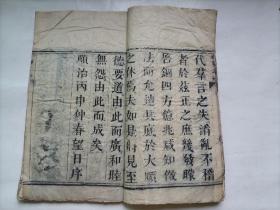 代羣言之失淆亂不稽
者於茲正之庶幾發矇
啓錮四方億兆咸知儀
法而允遵共底於大順
之休焉夫如是則見至
德要道由此而廣和睦
無怨由此而成矣
順治丙申仲春望日序